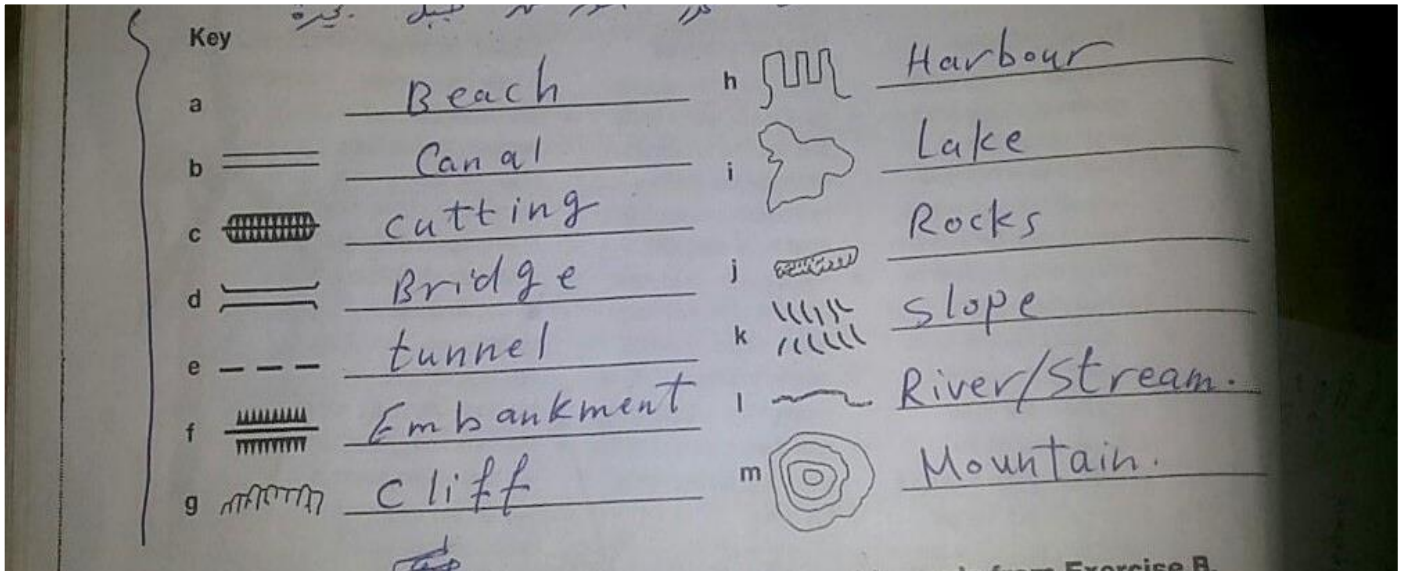 Key
a Beach
b Canal
c cutting
d Bridge
e tunnel
f Embankment
g cliff
h Harbour
i Lake
j Rocks
k slope
l River/Stream.
m Mountain.
from Exercise B.